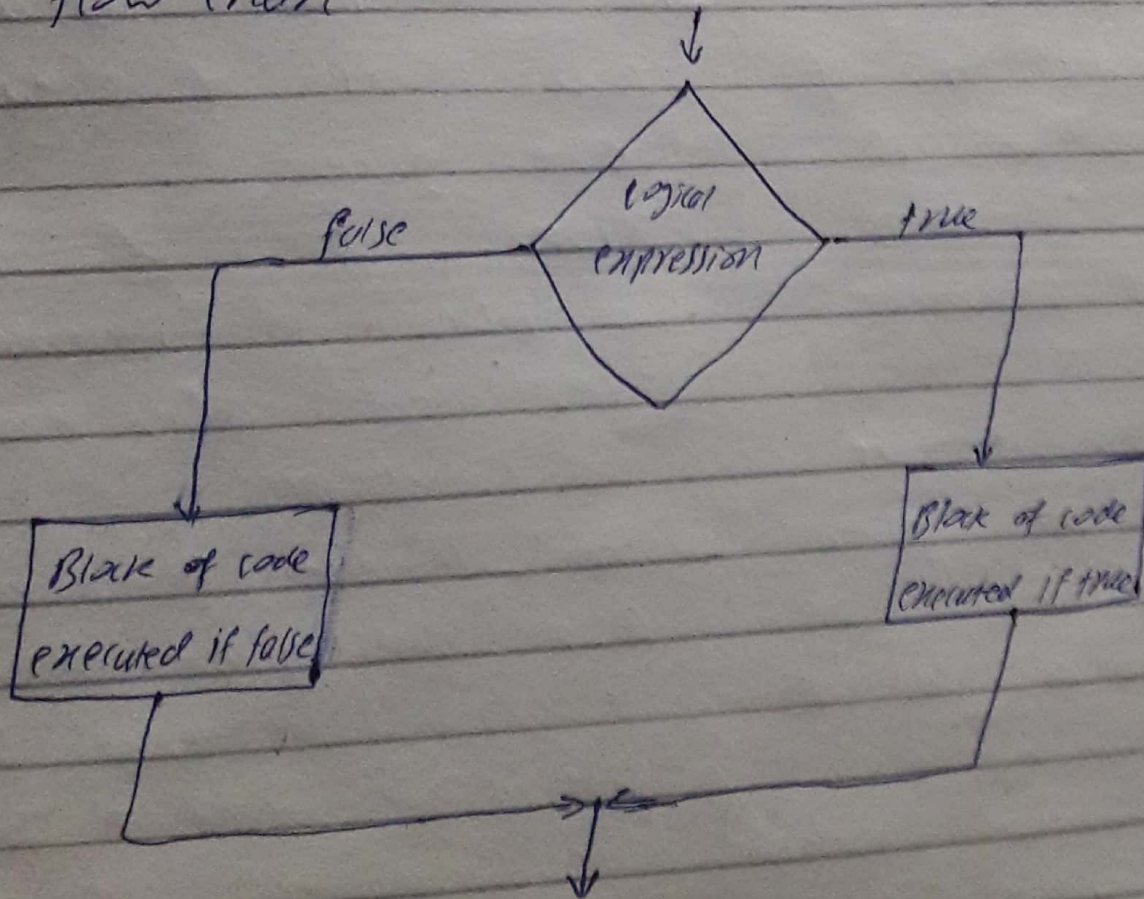 flow chart
logical
expression
false
true
Block of code
executed if false
Block of code
executed if true